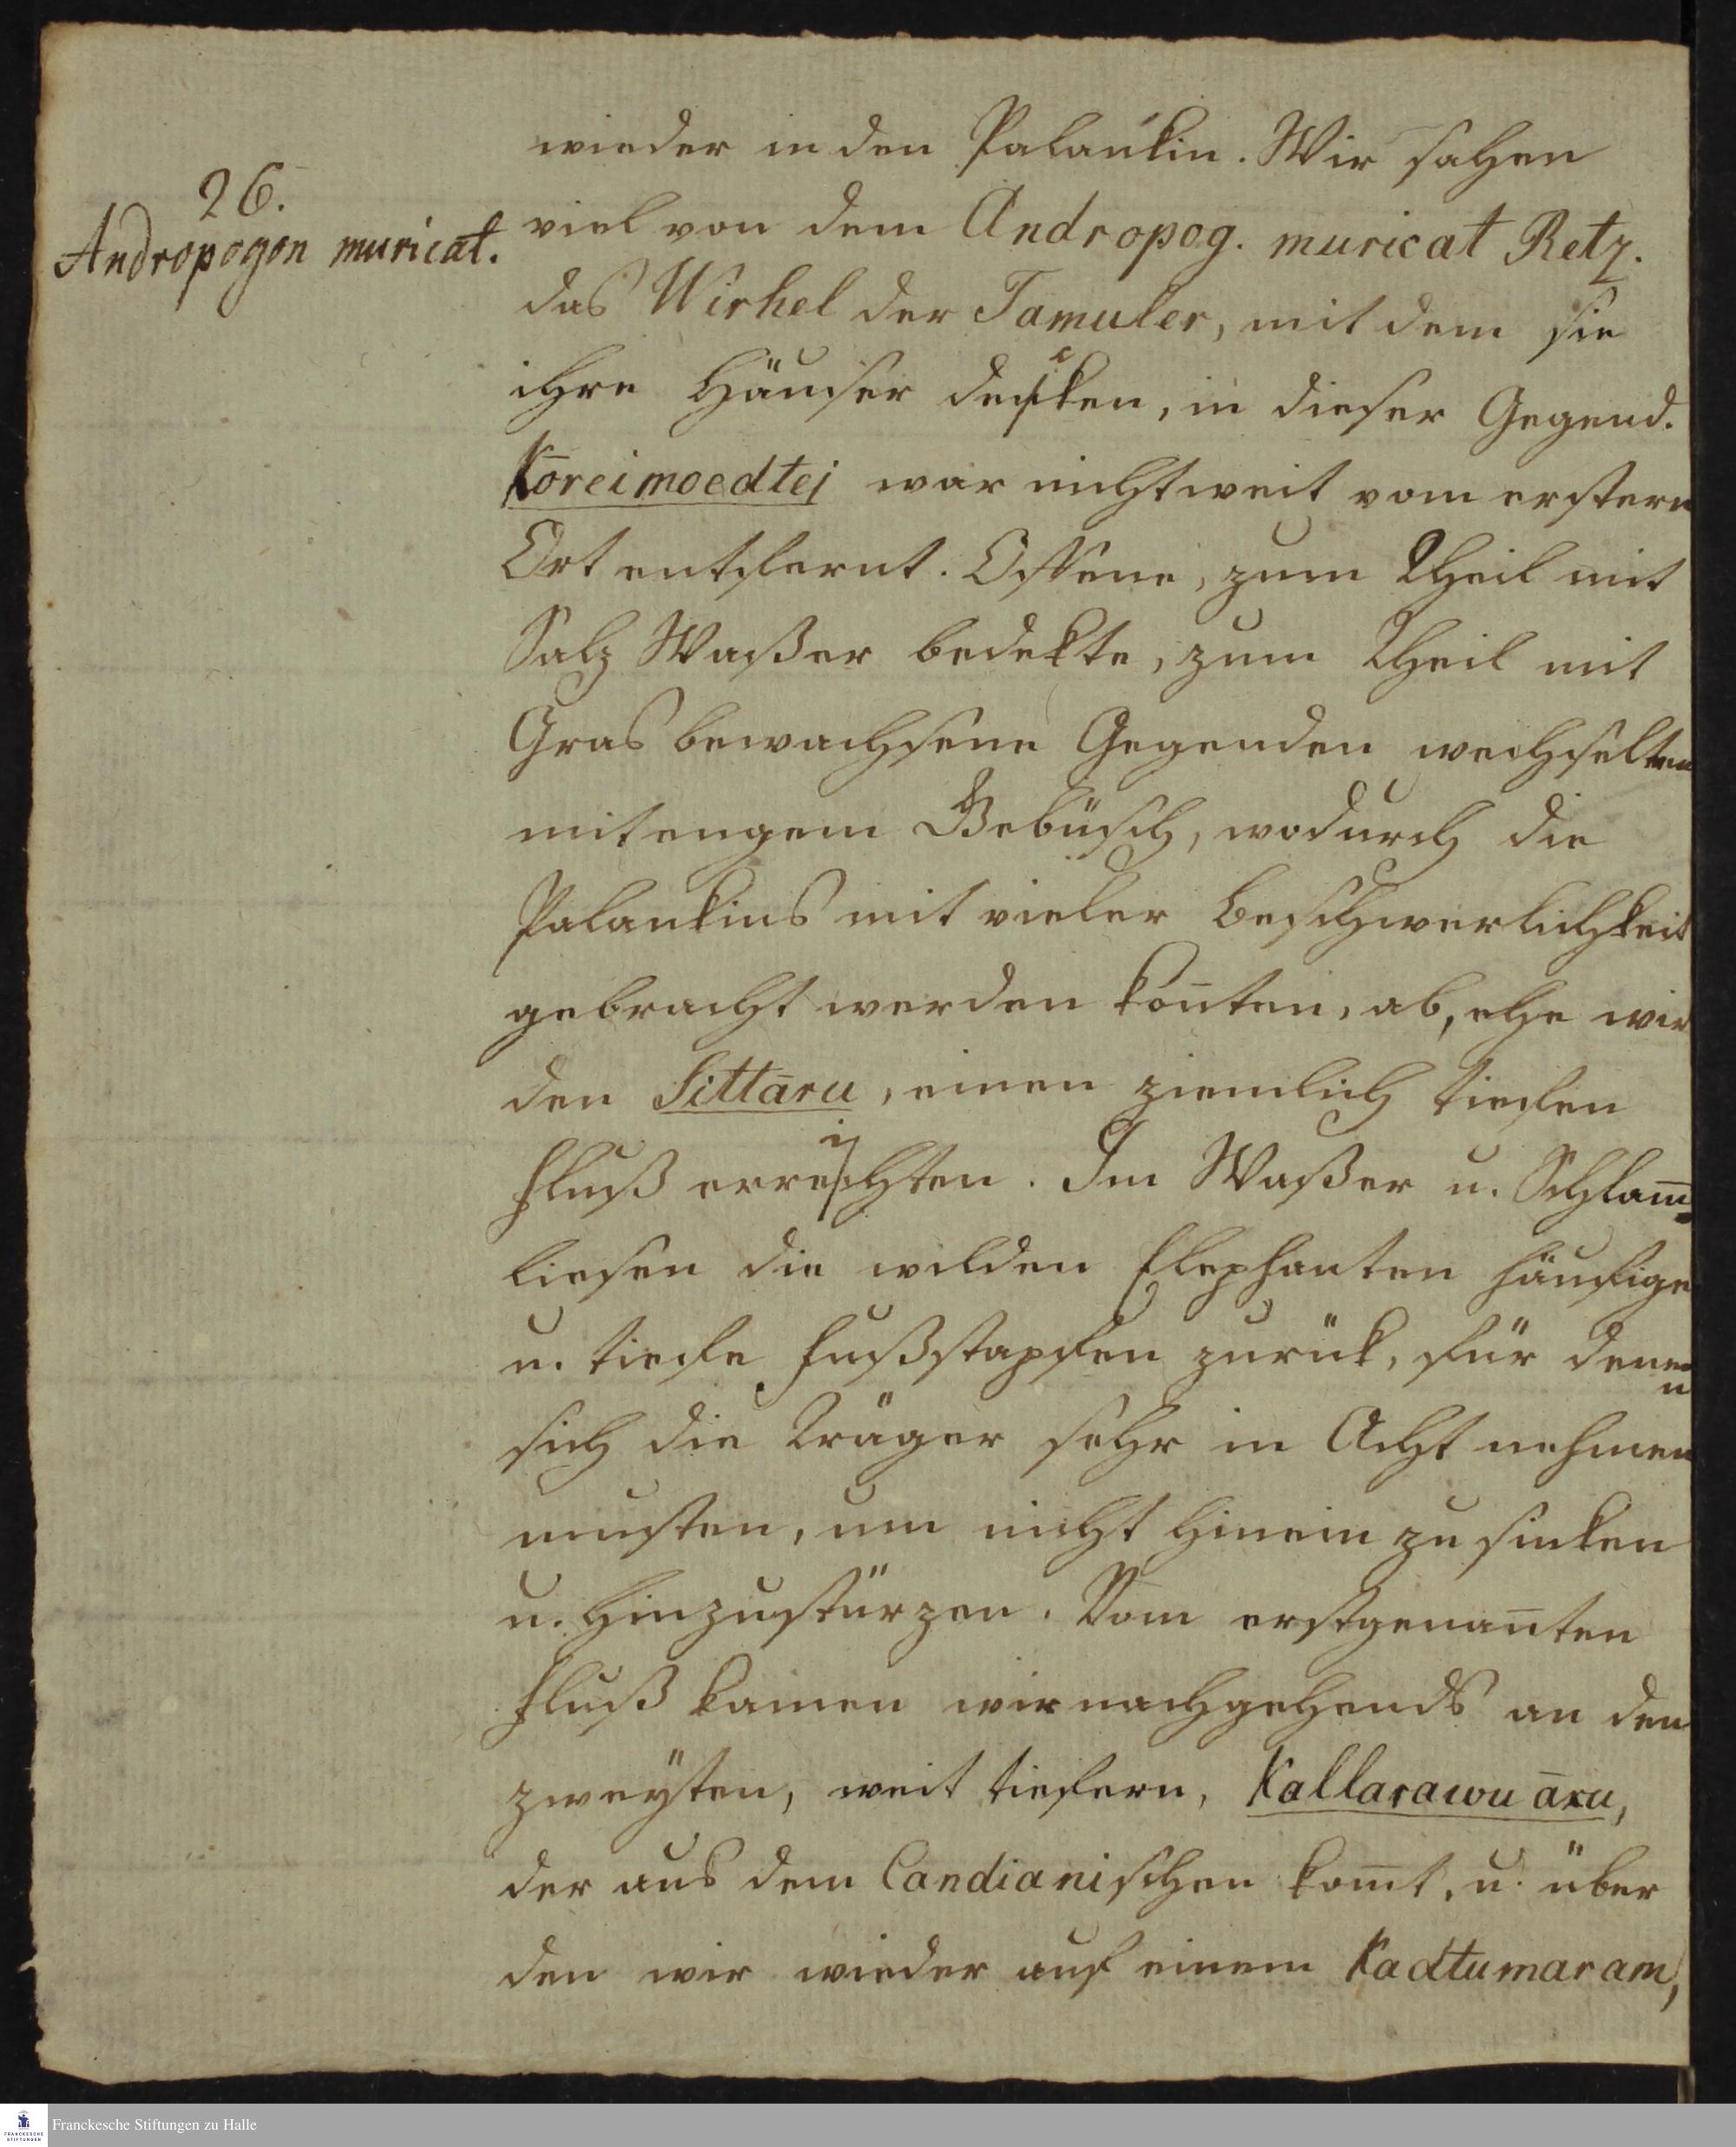 26.
Andropogon muricat.
wieder in den Palankin. Wir sahen
viel von dem Andropog. muricat Retz.
das Wirhel der Tamuler, mit dem sie
ihre Häuser decken, in dieser Gegend.
Kōreimoedtei war nicht weit vom erstern
Ort entfernt. Offene, zum Theil mit
Salz Waßer bedekte, zum Theil mit
Gras bewachsene Gegenden wechselten
mit engem Gebüsch, wodurch die
Palankins mit vieler Beschwerlichkeit
gebracht werden kon̄ten, ab, ehe wir
den Sittāru, einen ziemlich tiefen
Fluß erreichten. Im Waßer u. Schlam̄
liesen die wilden Elephanten häufige
u. tiefe Fußstapfen zurük, für denen
sich die Träger sehr in Acht nehmen
musten, um nicht hinein zu sinken
u. hinzustürzen. Vom erstgenan̄ten
Fluß kamen wir nachgehends an den
zweÿten, weit tiefern, Kallarawu āru,
der aus dem Candianischen kom̄t, u. über
den wir wieder auf einem Kadtumaram,
Franckesche Stiftungen zu Halle
FRANCKESCHE
STIFTUNGEN